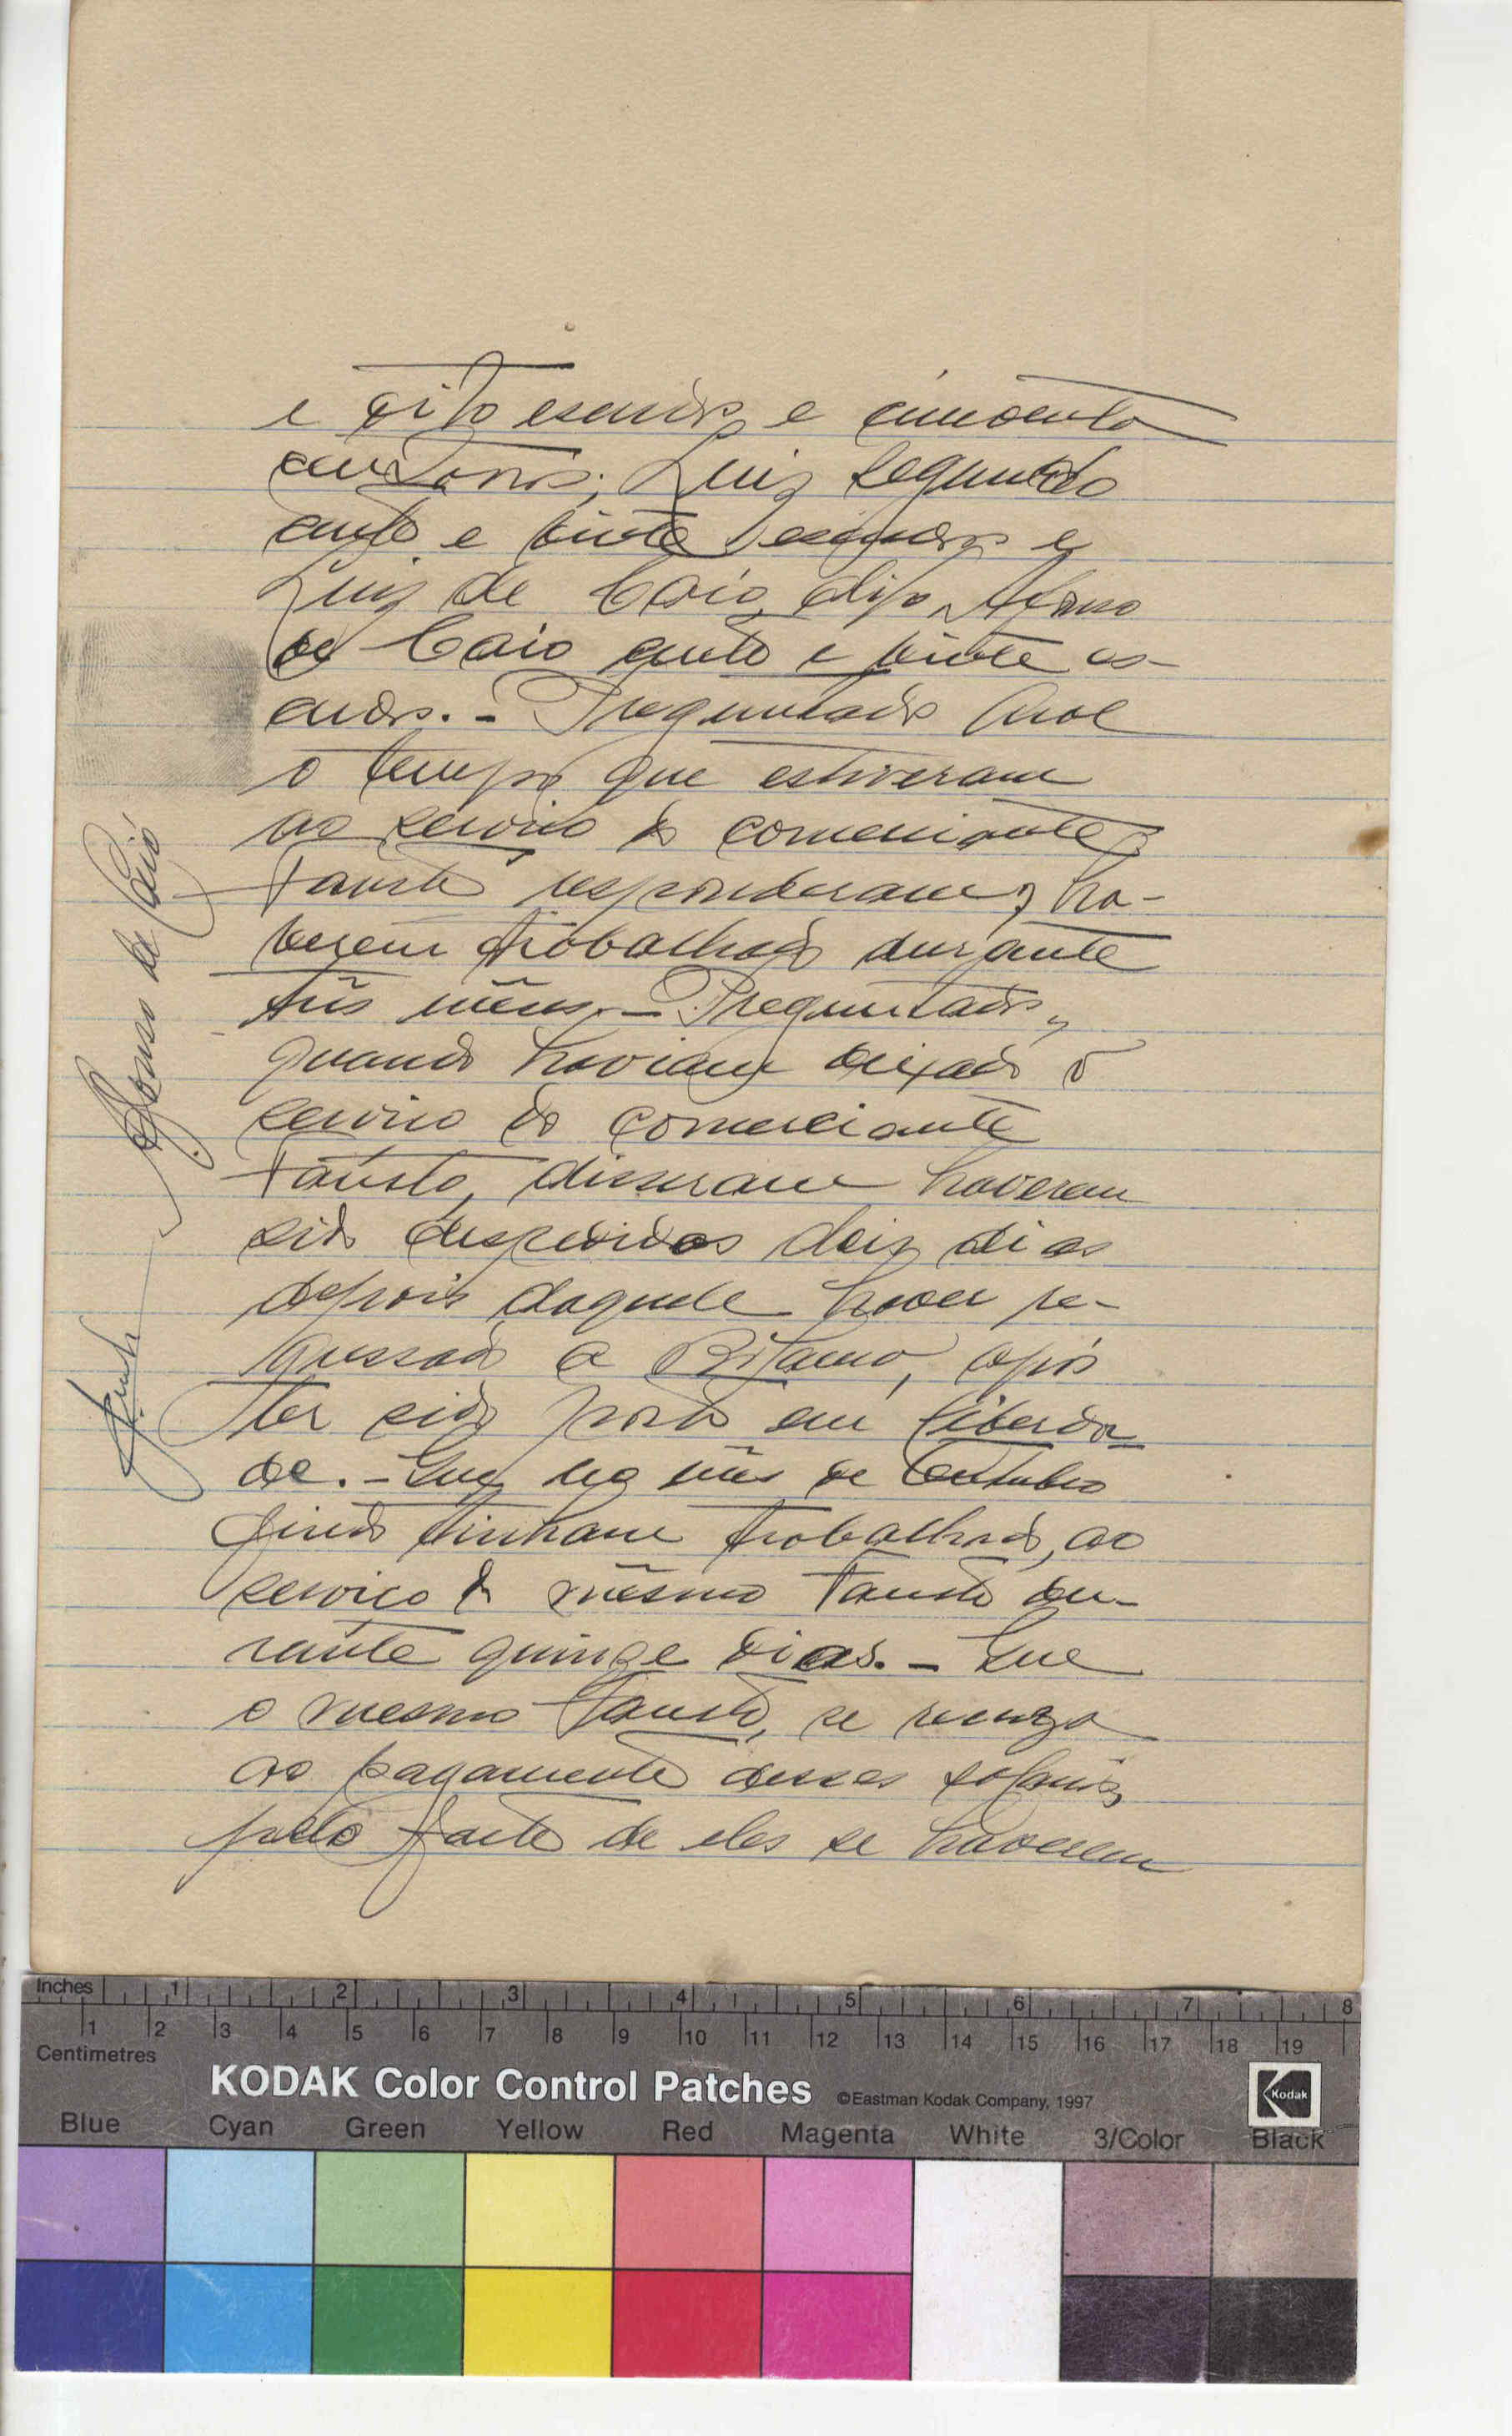 e oito escudos e cincoenta
centavos; Luiz Segundo
cento e vinte escudos e
Luiz de Caió, digo, Afonso
de Caió cento e vinte es-
cudos. - Preguntado qual
o tempo que estiveram
ao serviço do comerciante
Fausto responderam, ha-
verem trabalhado durante
três mêses. - Preguntados,
quando haviam deixado o
serviço do comerciante
Fausto, disseram haverem
sido despedidos dois dias
depois daquele haver re-
gressado a Bissau, após
ter sido posto em liberda-
de. - Que no mês de Outubro
findo tinham trabalhado, ao
serviço do mêsmo Fausto du-
rante quinze dias. - Que
o mesmo Fausto, se recusa
ao pagamento desses salarios,
pelo facto de eles se haverem
Afonso de Caió
Inches 1 2 3 4 5 6 7 8
1 2 3 4 5 6 7 8 9 10 11 12 13 14 15 16 17 18 19
Centimetres
KODAK Color Control Patches ©Eastman Kodak Company, 1997 Kodak
Blue Cyan Green Yellow Red Magenta White 3/Color Black